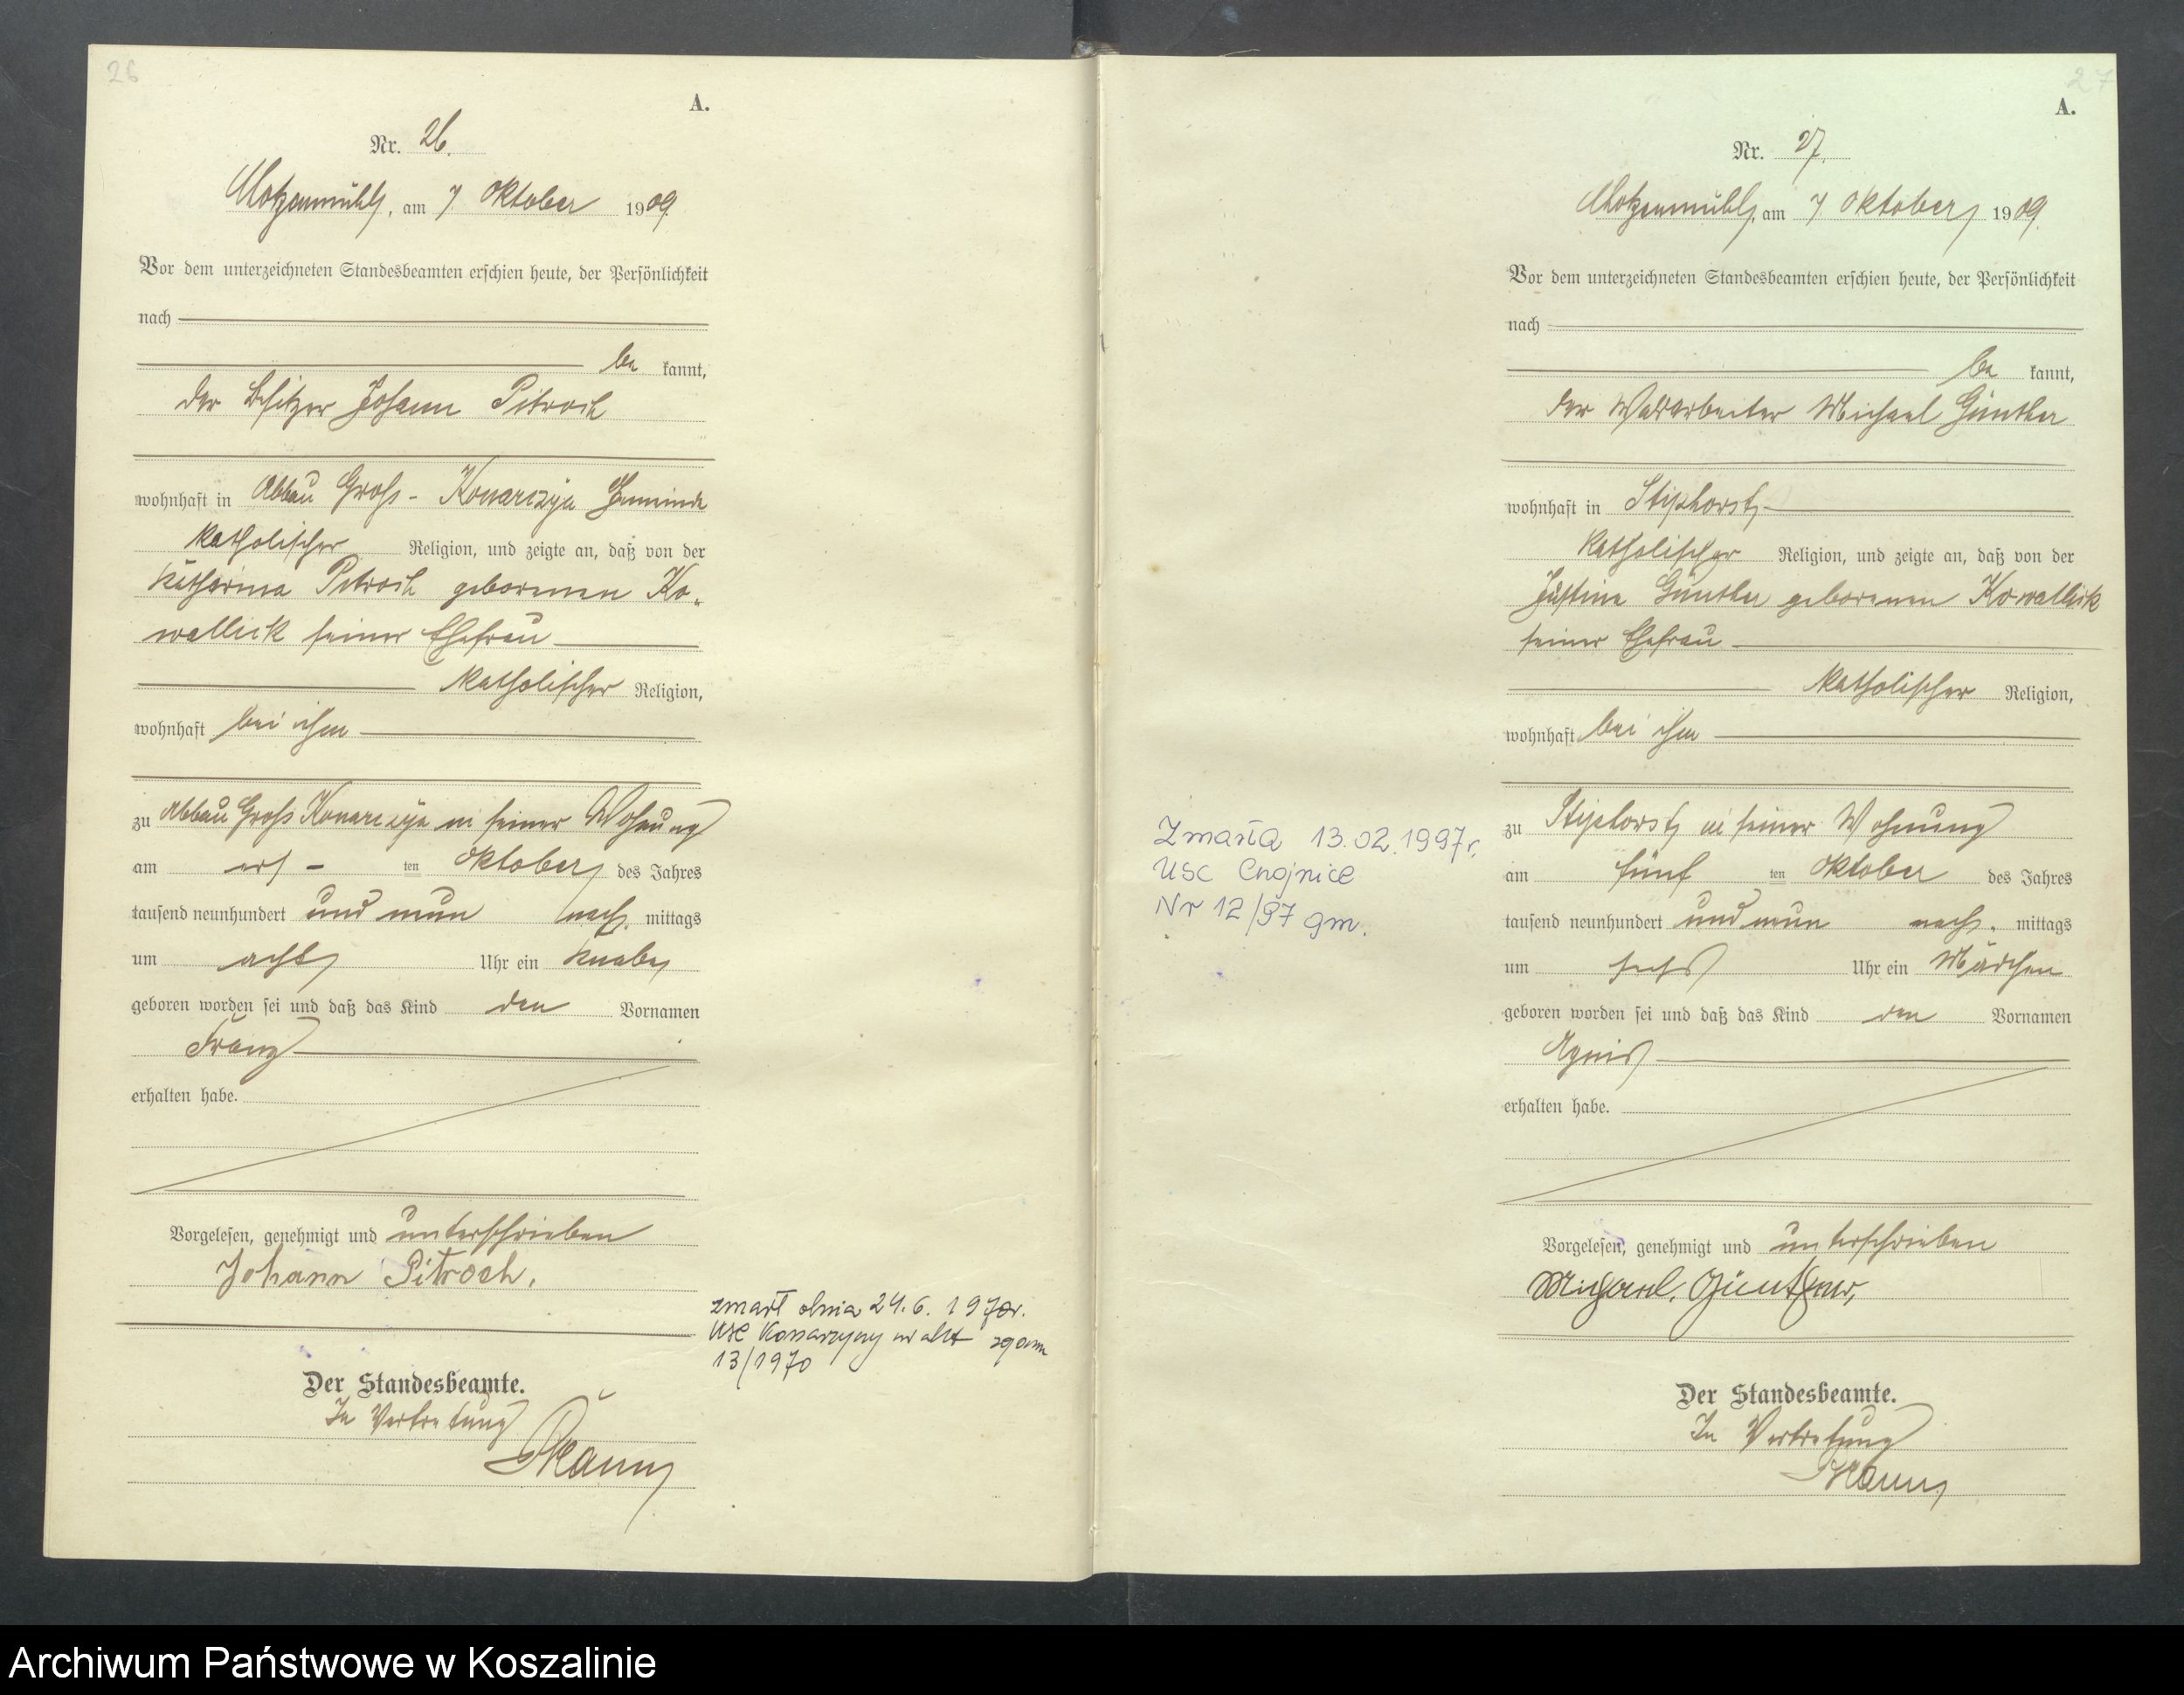 26
A.
Nr. 26.
Klotzenmühl, am 7. Oktober 1909.
Vor dem unterzeichneten Standesbeamten erschien heute, der Persönlichkeit
nach
be kannt,
der Besitzer Johann Pitroch
wohnhaft in Abbau Groß-Konarczyn Gemeinde
katholischer Religion, und zeigte an, daß von der
Katharina Pitroch geborenen Ko-
wallick seiner Ehefrau
katholischer Religion,
wohnhaft bei ihm
zu Abbau Groß Konarczyn in seiner Wohnung
am ers-ten Oktober des Jahres
tausend neunhundert und neun nach mittags
um acht Uhr ein Knabe
geboren worden sei und daß das Kind den Vornamen
Franz
erhalten habe.
Vorgelesen, genehmigt und unterschrieben
Johann Pitroch.
zmarł dnia 24.6. 1970r.
USC Konarzyny nr akt zgonu
13/1970
Der Standesbeamte.
In Vertretung
27
A.
Nr. 27.
Klotzenmühl, am 7. Oktober 1909.
Vor dem unterzeichneten Standesbeamten erschien heute, der Persönlichkeit
nach
be kannt,
der Waldarbeiter Michael Günther
wohnhaft in Stiphorst
katholischer Religion, und zeigte an, daß von der
Justine Günther geborenen Kowallick
seiner Ehefrau
katholischer Religion,
wohnhaft bei ihm
zu Stiphorst in seiner Wohnung
am fünf ten Oktober des Jahres
tausend neunhundert und neun nach mittags
um sechs Uhr ein Mädchen
geboren worden sei und daß das Kind den Vornamen
Agnes
erhalten habe.
Vorgelesen, genehmigt und unterschrieben
Michael Günther,
Der Standesbeamte.
In Vertretung
Zmarła 13.02.1997r.
USC Chojnice
Nr 12/97 gm.
Archiwum Państwowe w Koszalinie